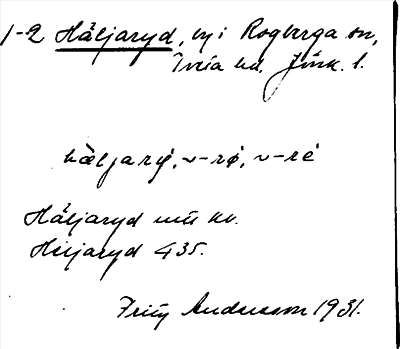 1-2 Häljaryd, by i Rogberga sn,
Tveta hd, Jönk. l.
hæljarø̀, ~-rø, ~-rè
Häljaryd
Heljaryd 435.
Andersson 1931.